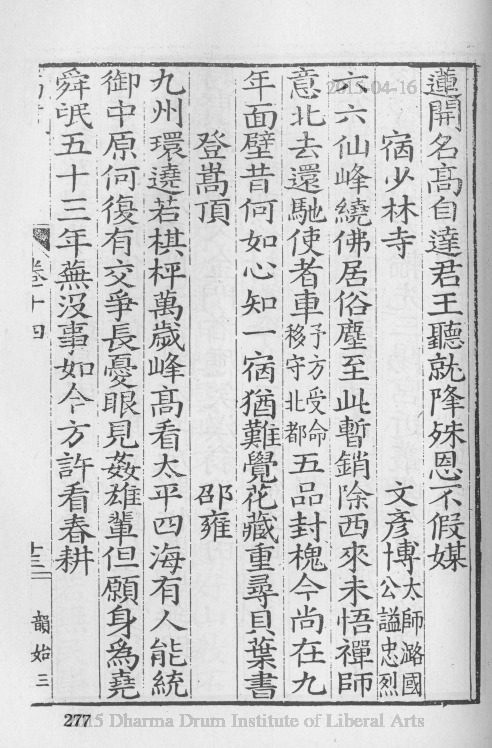 蓮開名髙自達君王聽就降殊恩不假媒
宿少林寺 文彥博太師潞國公謚忠烈
六六仙峰繞佛居俗塵至此暫銷除西來未悟禪師
意北去還馳使者車予方受命移守北都五品封槐今尚在九
年面壁昔何如心知一宿猶難覺花藏重尋貝葉書
登嵩頂 邵雍
九州環遶若棋枰萬歲峰髙看太平四海有人能統
御中原何復有交爭長憂眼見姦雄輩但願身為堯
舜氓五十三年蕪没事如今方許看春耕
卷十四
十三
韻始三
277
2015-04-16
15 Dharma Drum Institute of Liberal Arts